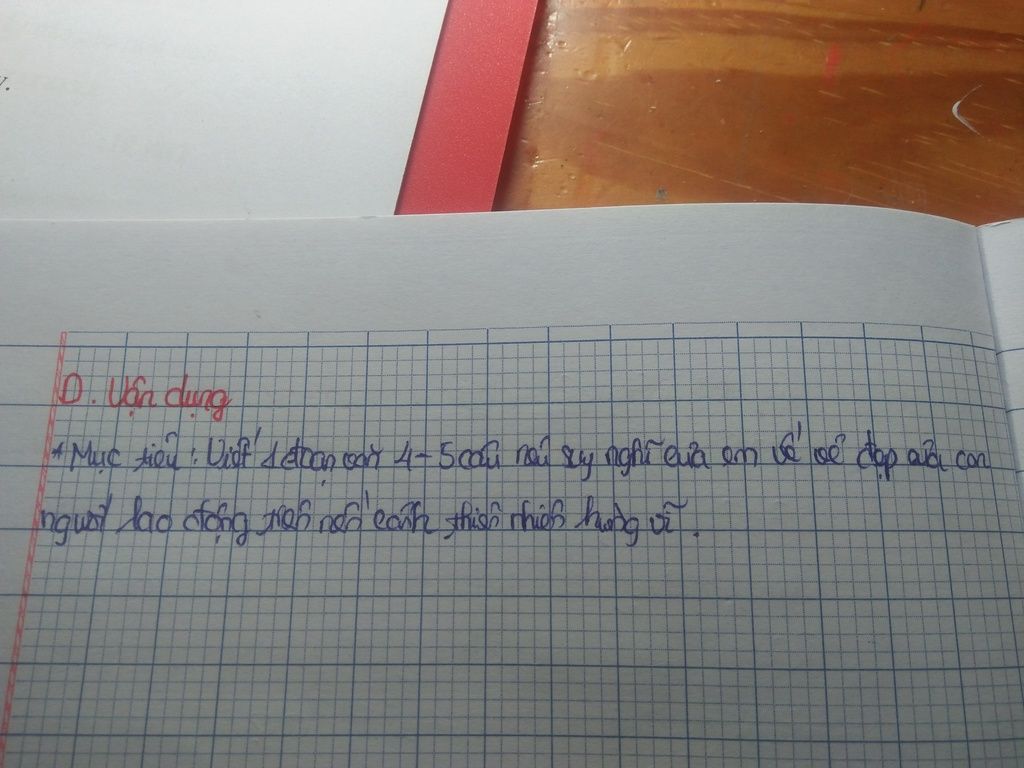 D. Vận dụng
* Mục tiêu: Viết 1 đoạn văn 4-5 câu nêu suy nghĩ của em về vẻ đẹp của con
người lao động trên nền cảnh thiên nhiên hùng vĩ.